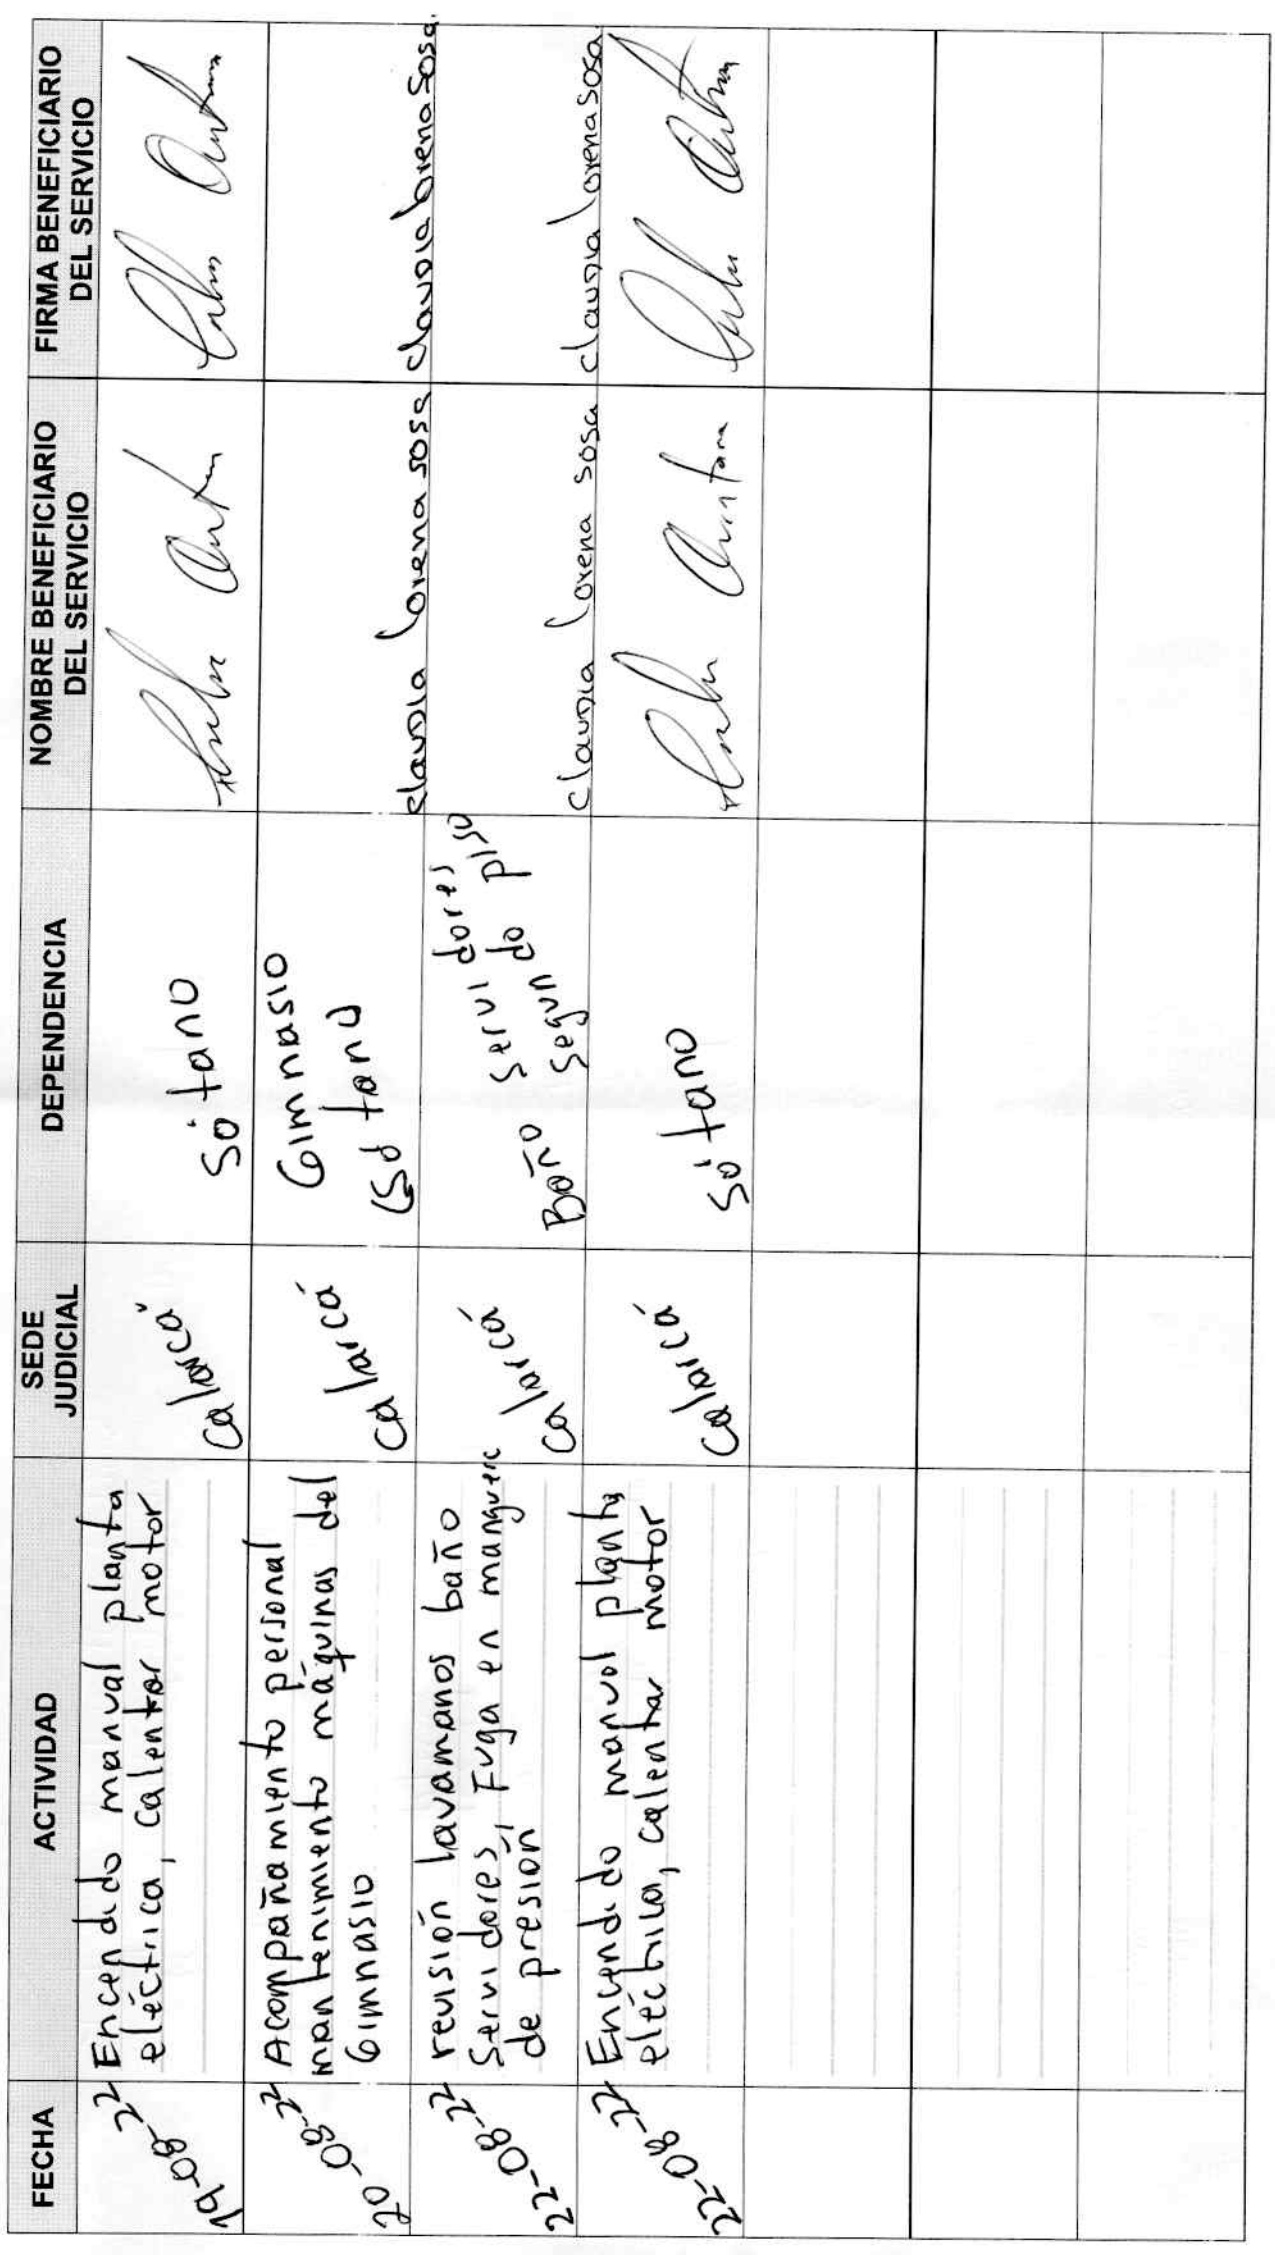 FECHA
ACTIVIDAD
SEDE
JUDICIAL
DEPENDENCIA
NOMBRE BENEFICIARIO
DEL SERVICIO
FIRMA BENEFICIARIO
DEL SERVICIO
19-08-22
Encendido manual planta
eléctrica, calentar motor
Calarcá
Sótano
20-08-22
Acompañamiento personal
mantenimiento máquinas del
Gimnasio
Calarcá
Gimnasio
(Sótano
claudia lorena sosa
claudia lorena sosa
22-08-22
revisión lavamanos baño
Servidores, Fuga en manguere
de presión
Calarcá
Baño Servidores
Segundo piso
claudia lorena sosa
claudia lorena sosa
22-08-22
Encendido manual planta
eléctrica, calentar motor
Calarcá
Sótano
Quintana